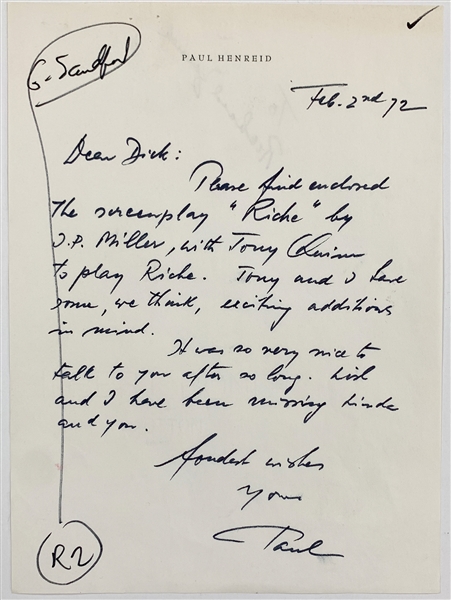 G. Sandford
PAUL HENREID
Feb. 2nd 72
Dear Dick:
Please find enclosed
the screenplay "Riche" by
J.P. Miller, with Tony Quinn
to play Riche. Tony and I have
some, we think, exciting additions
in mind.
It was so very nice to
talk to you after so long. Lisl
and I have been missing Linda
and you.
Fondest wishes
Yours
Paul
R2